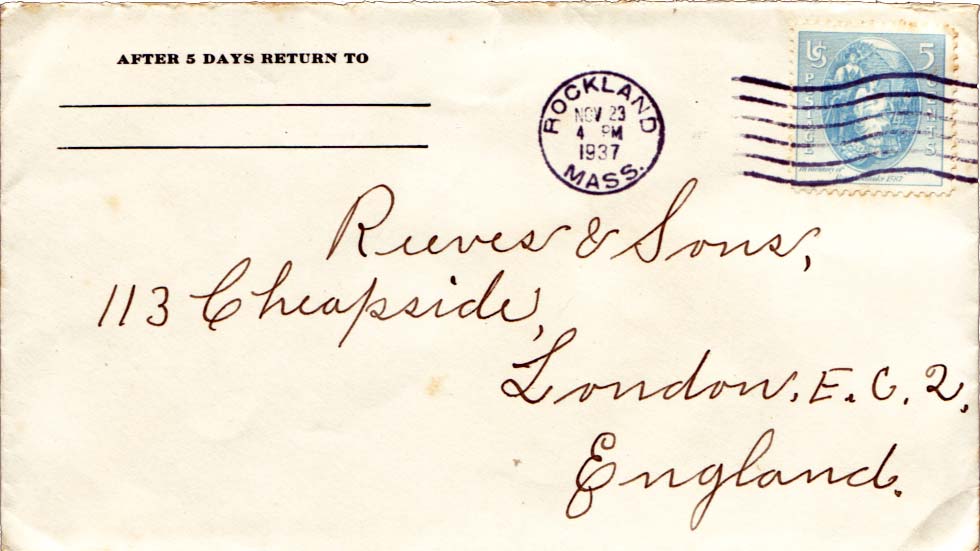 AFTER 5 DAYS RETURN TO
ROCKLAND
NOV 23
4 PM
1937
MASS.
US POSTAGE 5 CENTS
In memory of
1587
Reeves & Sons,
113 Cheapside,
London. E. C. 2,
England.